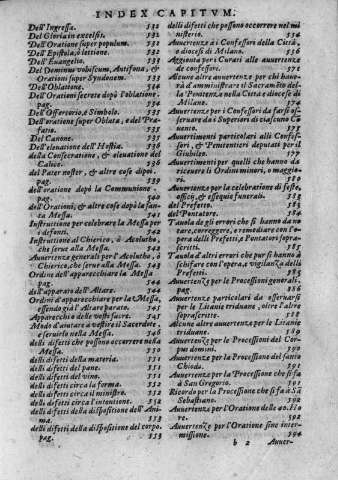 INDEX CAPITVM.
Dell'Ingressa. 532
Del Gloria in excelsis. 532
Dell'Oratione super populum. 532
Dell'Epistola, ò lettione. 532
Dell'Euangelio. 533
Del Dominus vobiscum, Antifona, &
Orationi super Syndonem. 533
Dell'Oblatione. 534
Dell'Orationi secrete dopò l'oblatione.
pag. 534
Dell'Offertorio, e Simbolo. 535
Dell'oratione super Oblata, e del Prefatio. 535
Del Canone. 535
Dell'eleuatione dell'Hostia. 536
della Consecratione, & eleuatione del
Calice. 536
del Pater noster, & altre cose dipoi.
pag. 539
dell'oratione dopò la Communione.
pag. 540
dell'Orationi, & altre cose dopò la santa Messa. 541
Instruttione per celebrare la Messa per
i defonti. 542
Instruttione al Chierico, ò Acolutho,
che serue alla Messa. 543
Auuertenze generali per l'Acolutho, ò
Chierico, che serue alla Messa. 543
Ordine dell'apparecchiare la Messa
544
dell'apparato dell'Altare. 544
Ordine d'apparecchiare per la Messa,
essendo già l'Altare parato. 545
Apparecchio delle vesti sacre. 545
Modo d'aiutare a vestire il Sacerdote,
e seruirlo nella Messa. 546
delli difetti che possono occorrere nella
Messa. 550
delli difetti della materia. 551
delli difetti del pane. 551
delli difetti del vino. 551
delli difetti circa la forma. 552
delli difetti circa il ministro. 552
delli difetti circa l'intentione. 552
delli difetti della dispositione dell'Anima. 553
delli difetti della dispositione del corpo.
pag. 553
delli difetti che possono occorrere nel ministerio. 553
Auuertenze a i Confessori della Città,
e diocesi di Milano.
Aggionta per i Curati alle auuertenze
de confessori. 571
Alcune altre auuertenze per chi hauerà d'amministrare il Sacramento della Penitenza nella Città e diocesi di
Milano. 574
Auuertenze per i Confessori da farsi osseruare da i Superiori di ciascuno Conuento. 575
Auuertimenti particolari alli Confessori, & Penitentieri deputati per il
Giubileo. 577
Auuertimenti per quelli che hanno da
riceuere li Ordini minori, o maggiori.
Auuertenze per la celebratione di feste,
officij, & essequie.
del Prefetto.
del Pontatore. 584
Tauola de gli errori che si hanno da notare, correggere, e remediare con l'opera delli Prefetti, & Pontatori soprascritti. 585
Tauola d'altri errori che pur si hanno à
schifare con l'opera, e vigilanza delli
Prefetti. 585
Auuertenze per le Processioni generali,
pag. 586
Auuertenze particolari da osseruarsi
per le Litanie triduane, oltre l'altre
soprascritte. 588
Alcune altre auuertenze per le Litanie
triduane. 589
Auuertenze per le Processioni del Corpus domini. 590
Auuertenze per la Processione del santo
Chiodo. 591
Auuertenze per la Processione che si fa
à San Gregorio. 591
Ricordo per la Processione che si fa à San
Sebastiano. 592
Auuertenze per l'Oratione delle 40. Hore. 592
Auuertenze per l'Oratione sine intermissione. 594
b 2 Auuer-